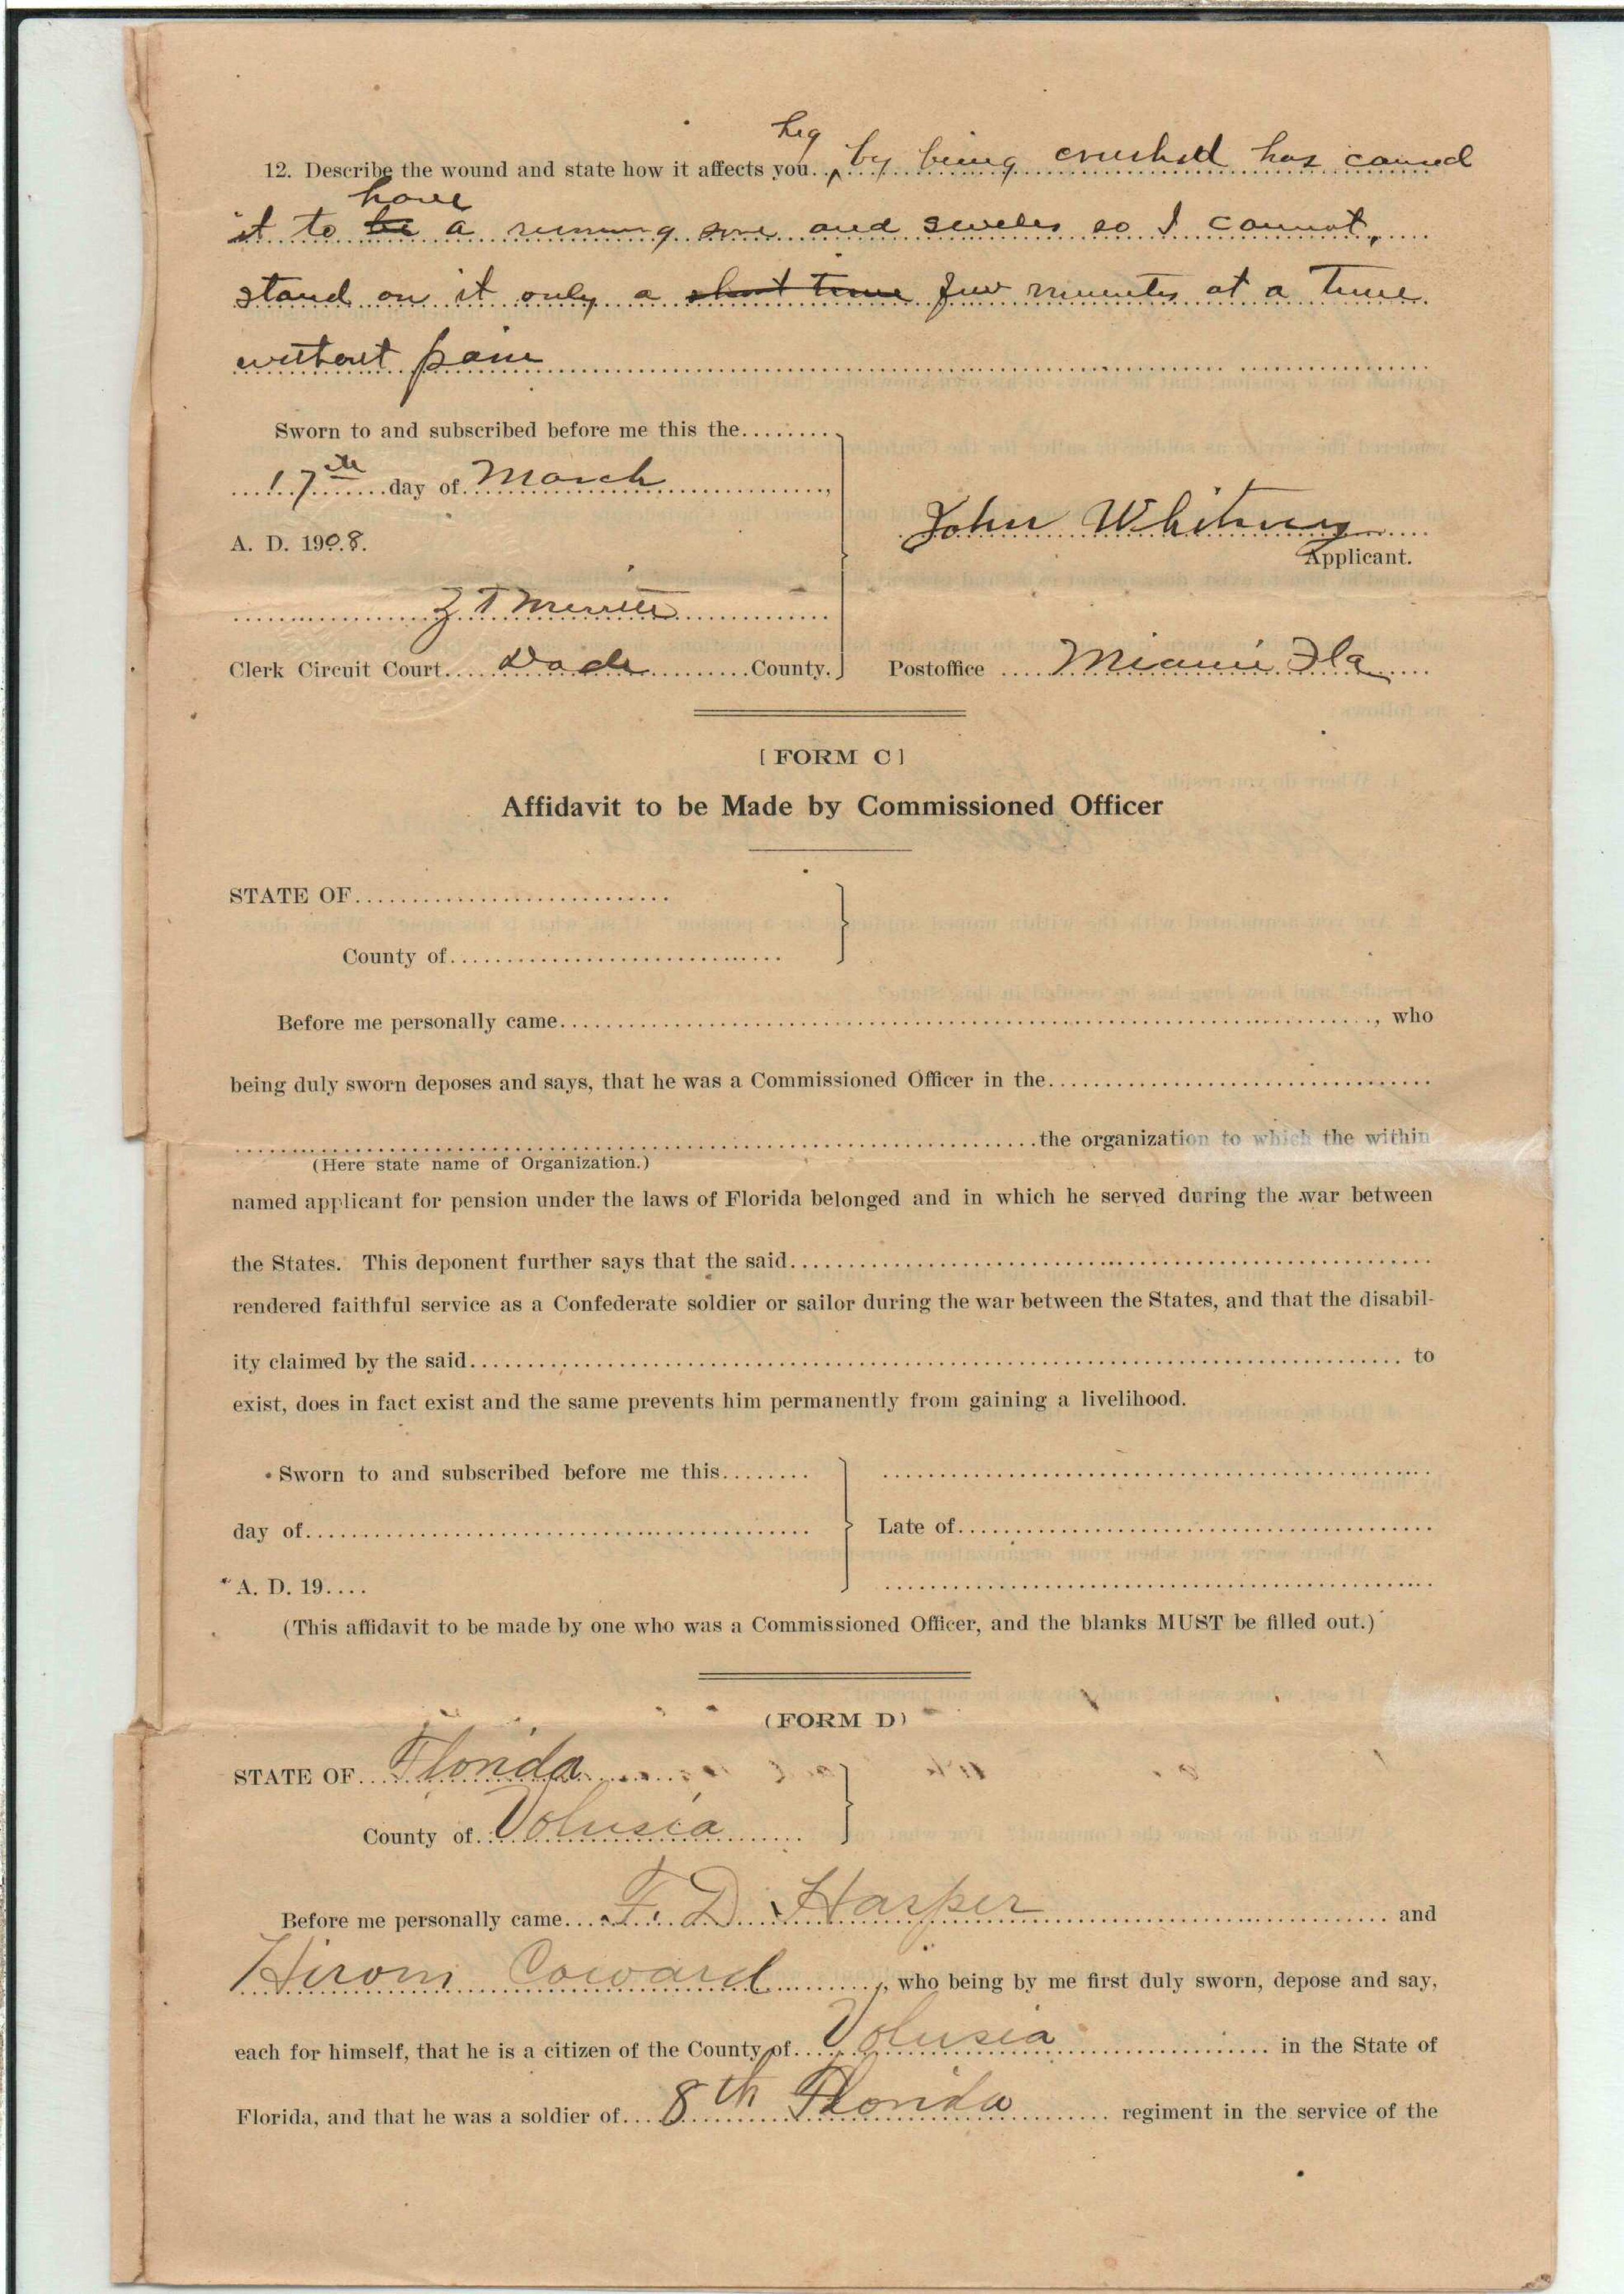 Leg
12. Describe the wound and state how it affects you. ^ by being crushed has caused
have
it to be a running sore and swells so I cannot
stand on it only a short time few minutes at a time
without pain
Sworn to and subscribed before me this the
17th day of March
A. D. 1908.
John Whitney
Applicant.
Z T Merritt
Clerk Circuit Court Dade County.
Postoffice Miami Fla
[FORM C]
Affidavit to be Made by Commissioned Officer
STATE OF
County of
Before me personally came , who
being duly sworn deposes and says, that he was a Commissioned Officer in the
the organization to which the within
(Here state name of Organization.)
named applicant for pension under the laws of Florida belonged and in which he served during the war between
the States. This deponent further says that the said
rendered faithful service as a Confederate soldier or sailor during the war between the States, and that the disabil-
ity claimed by the said to
exist, does in fact exist and the same prevents him permanently from gaining a livelihood.
Sworn to and subscribed before me this
day of
Late of
A. D. 19....
(This affidavit to be made by one who was a Commissioned Officer, and the blanks MUST be filled out.)
(FORM D)
STATE OF Florida
County of Volusia
Before me personally came F. D. Harper and
Hirom Coward , who being by me first duly sworn, depose and say,
each for himself, that he is a citizen of the County of Volusia in the State of
Florida, and that he was a soldier of 8th Florida regiment in the service of the